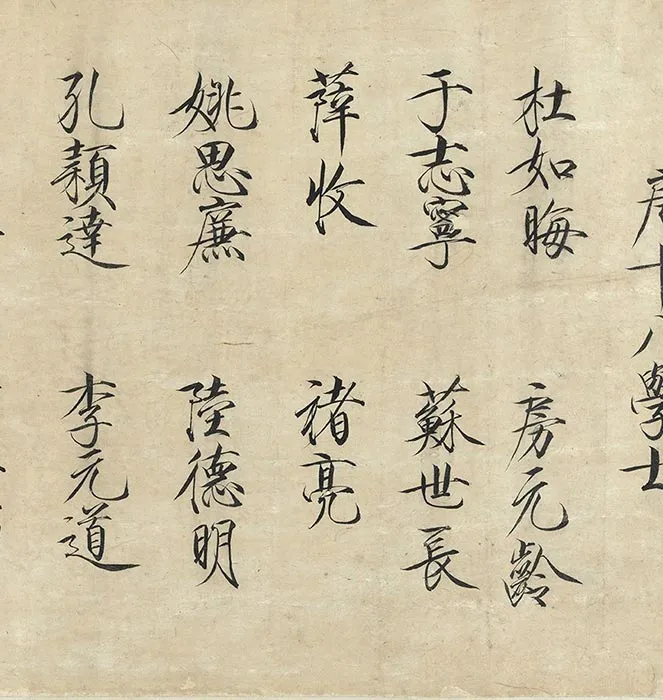 唐十八學士
杜如晦 房元齡
于志寧 蘇世長
薛收 褚亮
姚思廉 陸德明
孔穎達 李元道